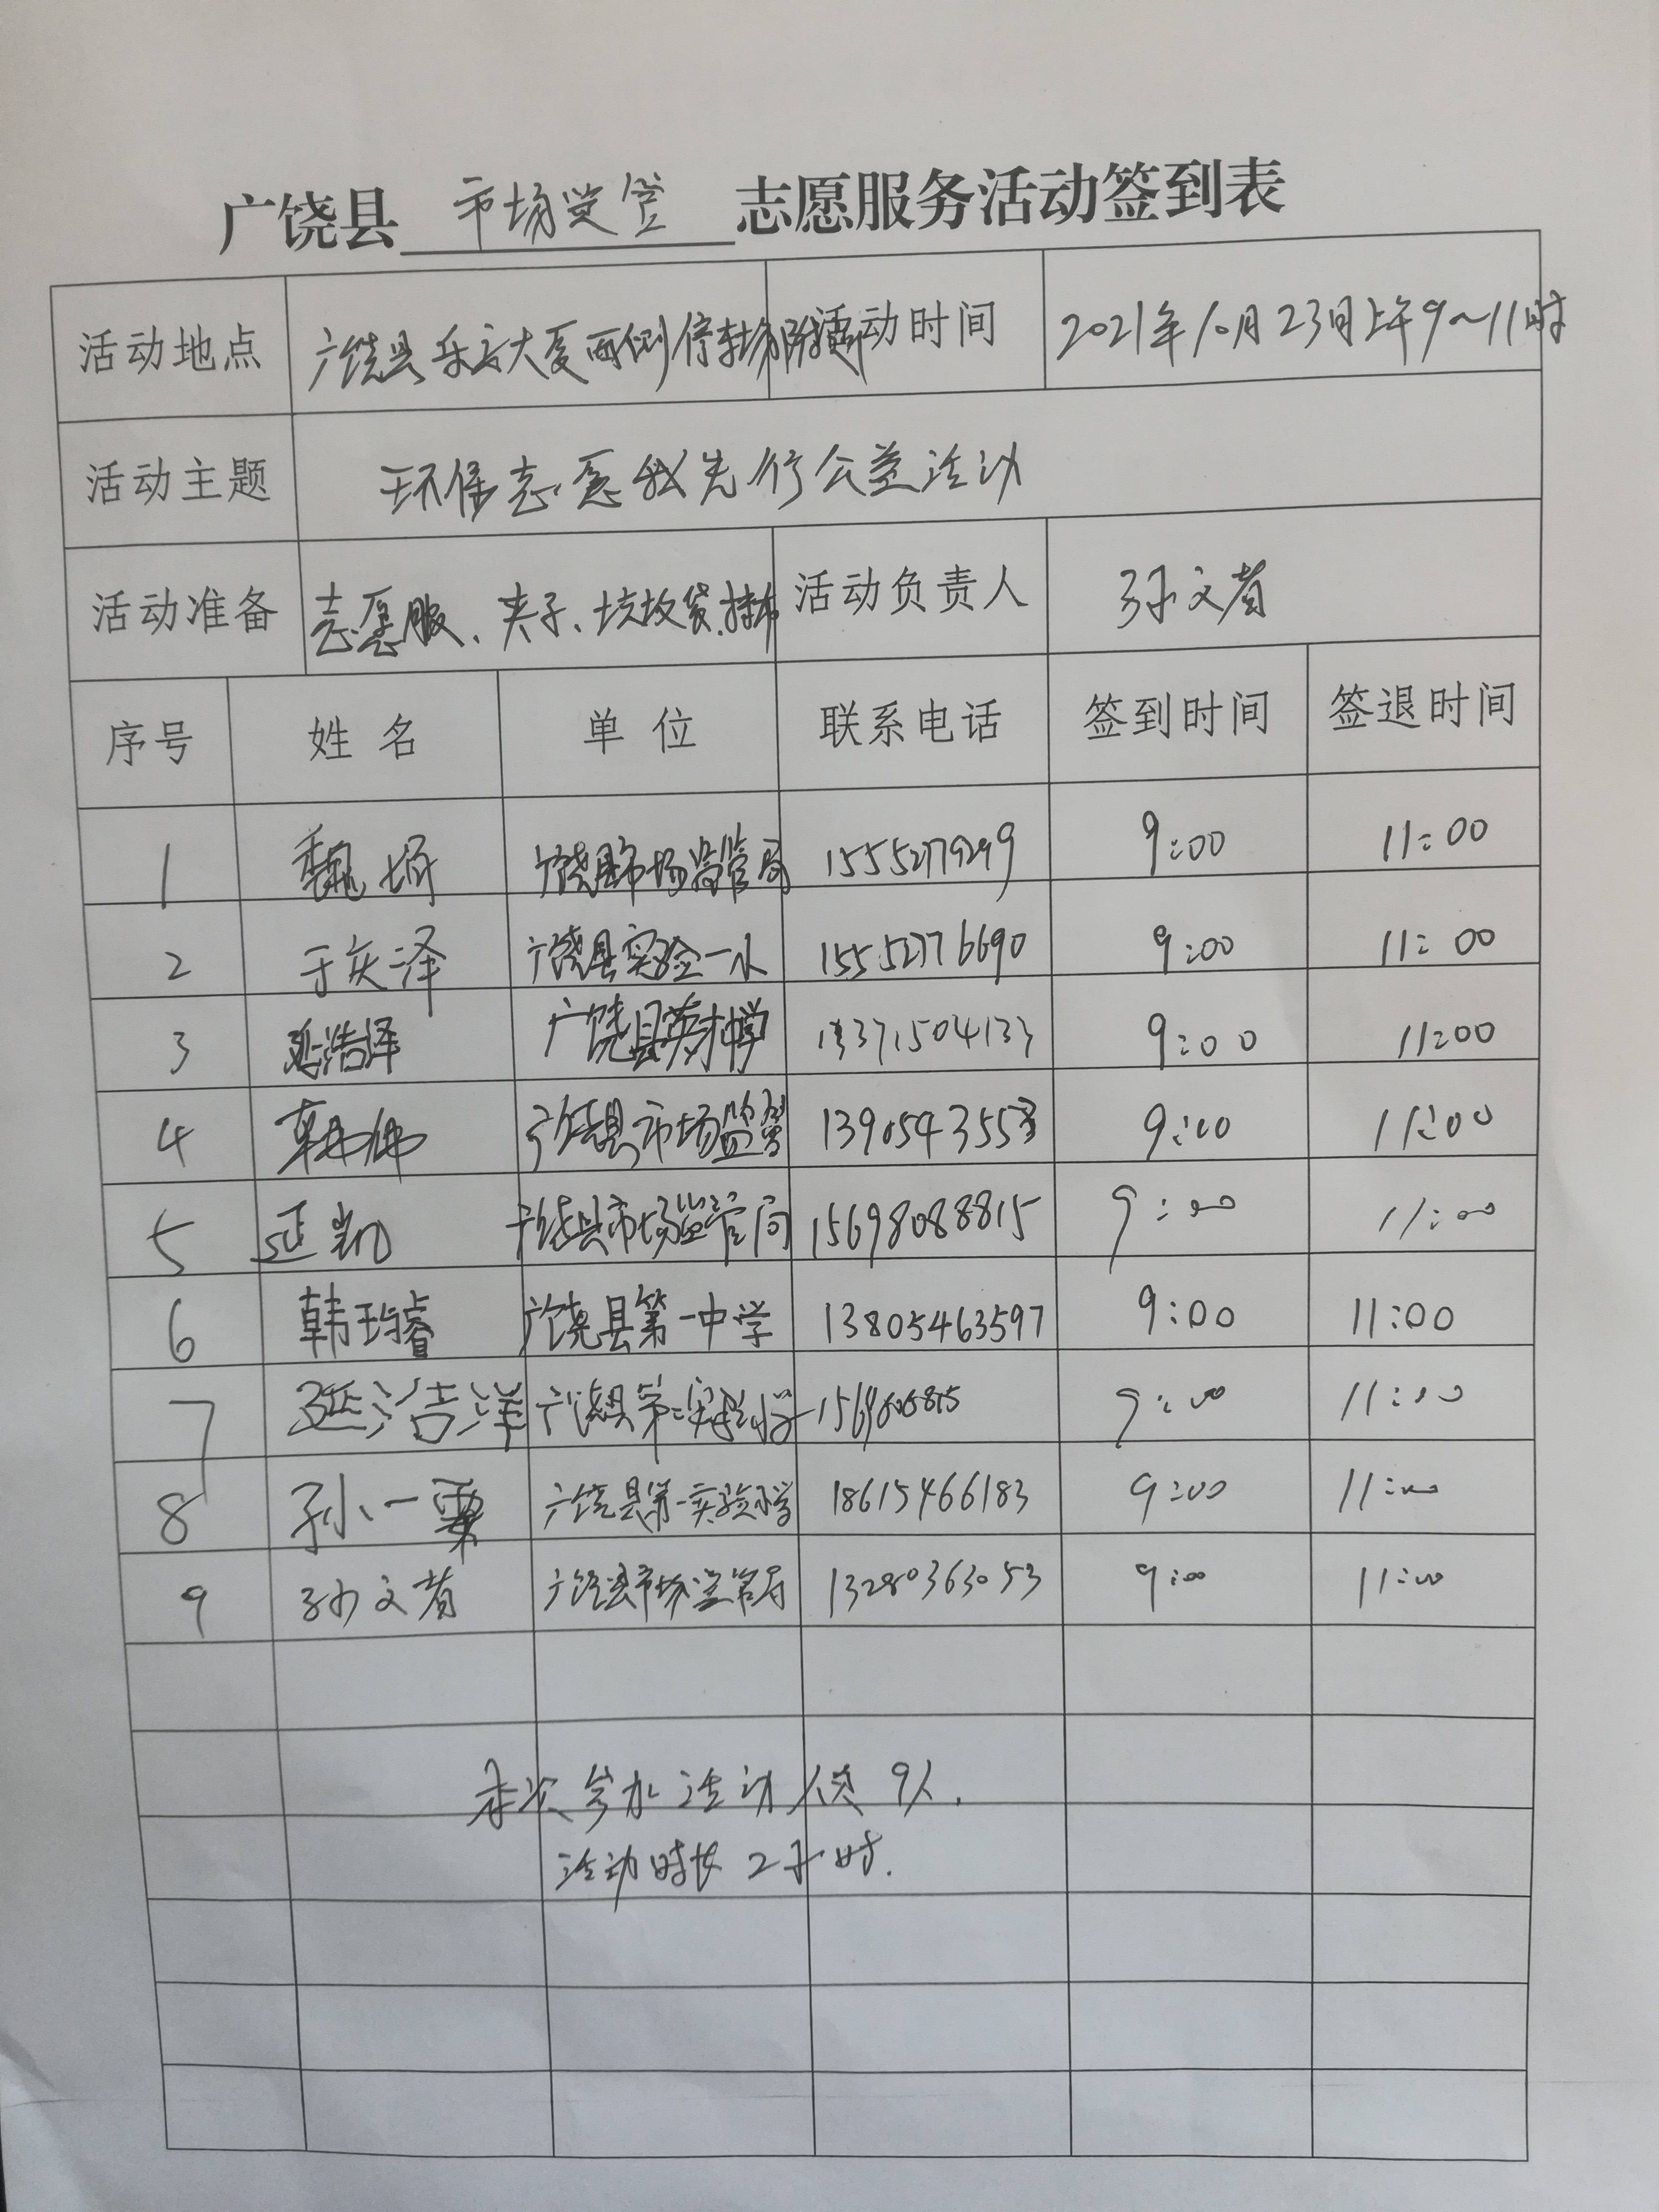 广饶县 市场监管 志愿服务活动签到表
活动地点 广饶县乐安大厦西侧停车场附近 活动时间 2021年10月23日上午9~11时
活动主题 环保志愿我先行公益活动
活动准备 志愿服、夹子、垃圾袋、挂布 活动负责人 孙文
序号 姓名 单位 联系电话 签到时间 签退时间
1 魏 广饶县市场监管局 9:00 11:00
2 于 泽 广饶县实验一小 15552776690 9:00 11:00
3 延浩泽 广饶县英才中学 13371504133 9:00 11:00
4 韩伟 广饶县市场监管 9:00 11:00
5 延凯 广饶县市场监管局 15698088815 9:00 11:00
6 韩均睿 广饶县第一中学 13805463597 9:00 11:00
7 延浩洋 广饶县第二实验小学 9:00 11:00
8 孙一粟 广饶县第一实验小学 18615466183 9:00 11:00
9 孙文 广饶县市场监管局 13280363053 9:00 11:00
本次参加活动人员9人.
活动时长2小时.